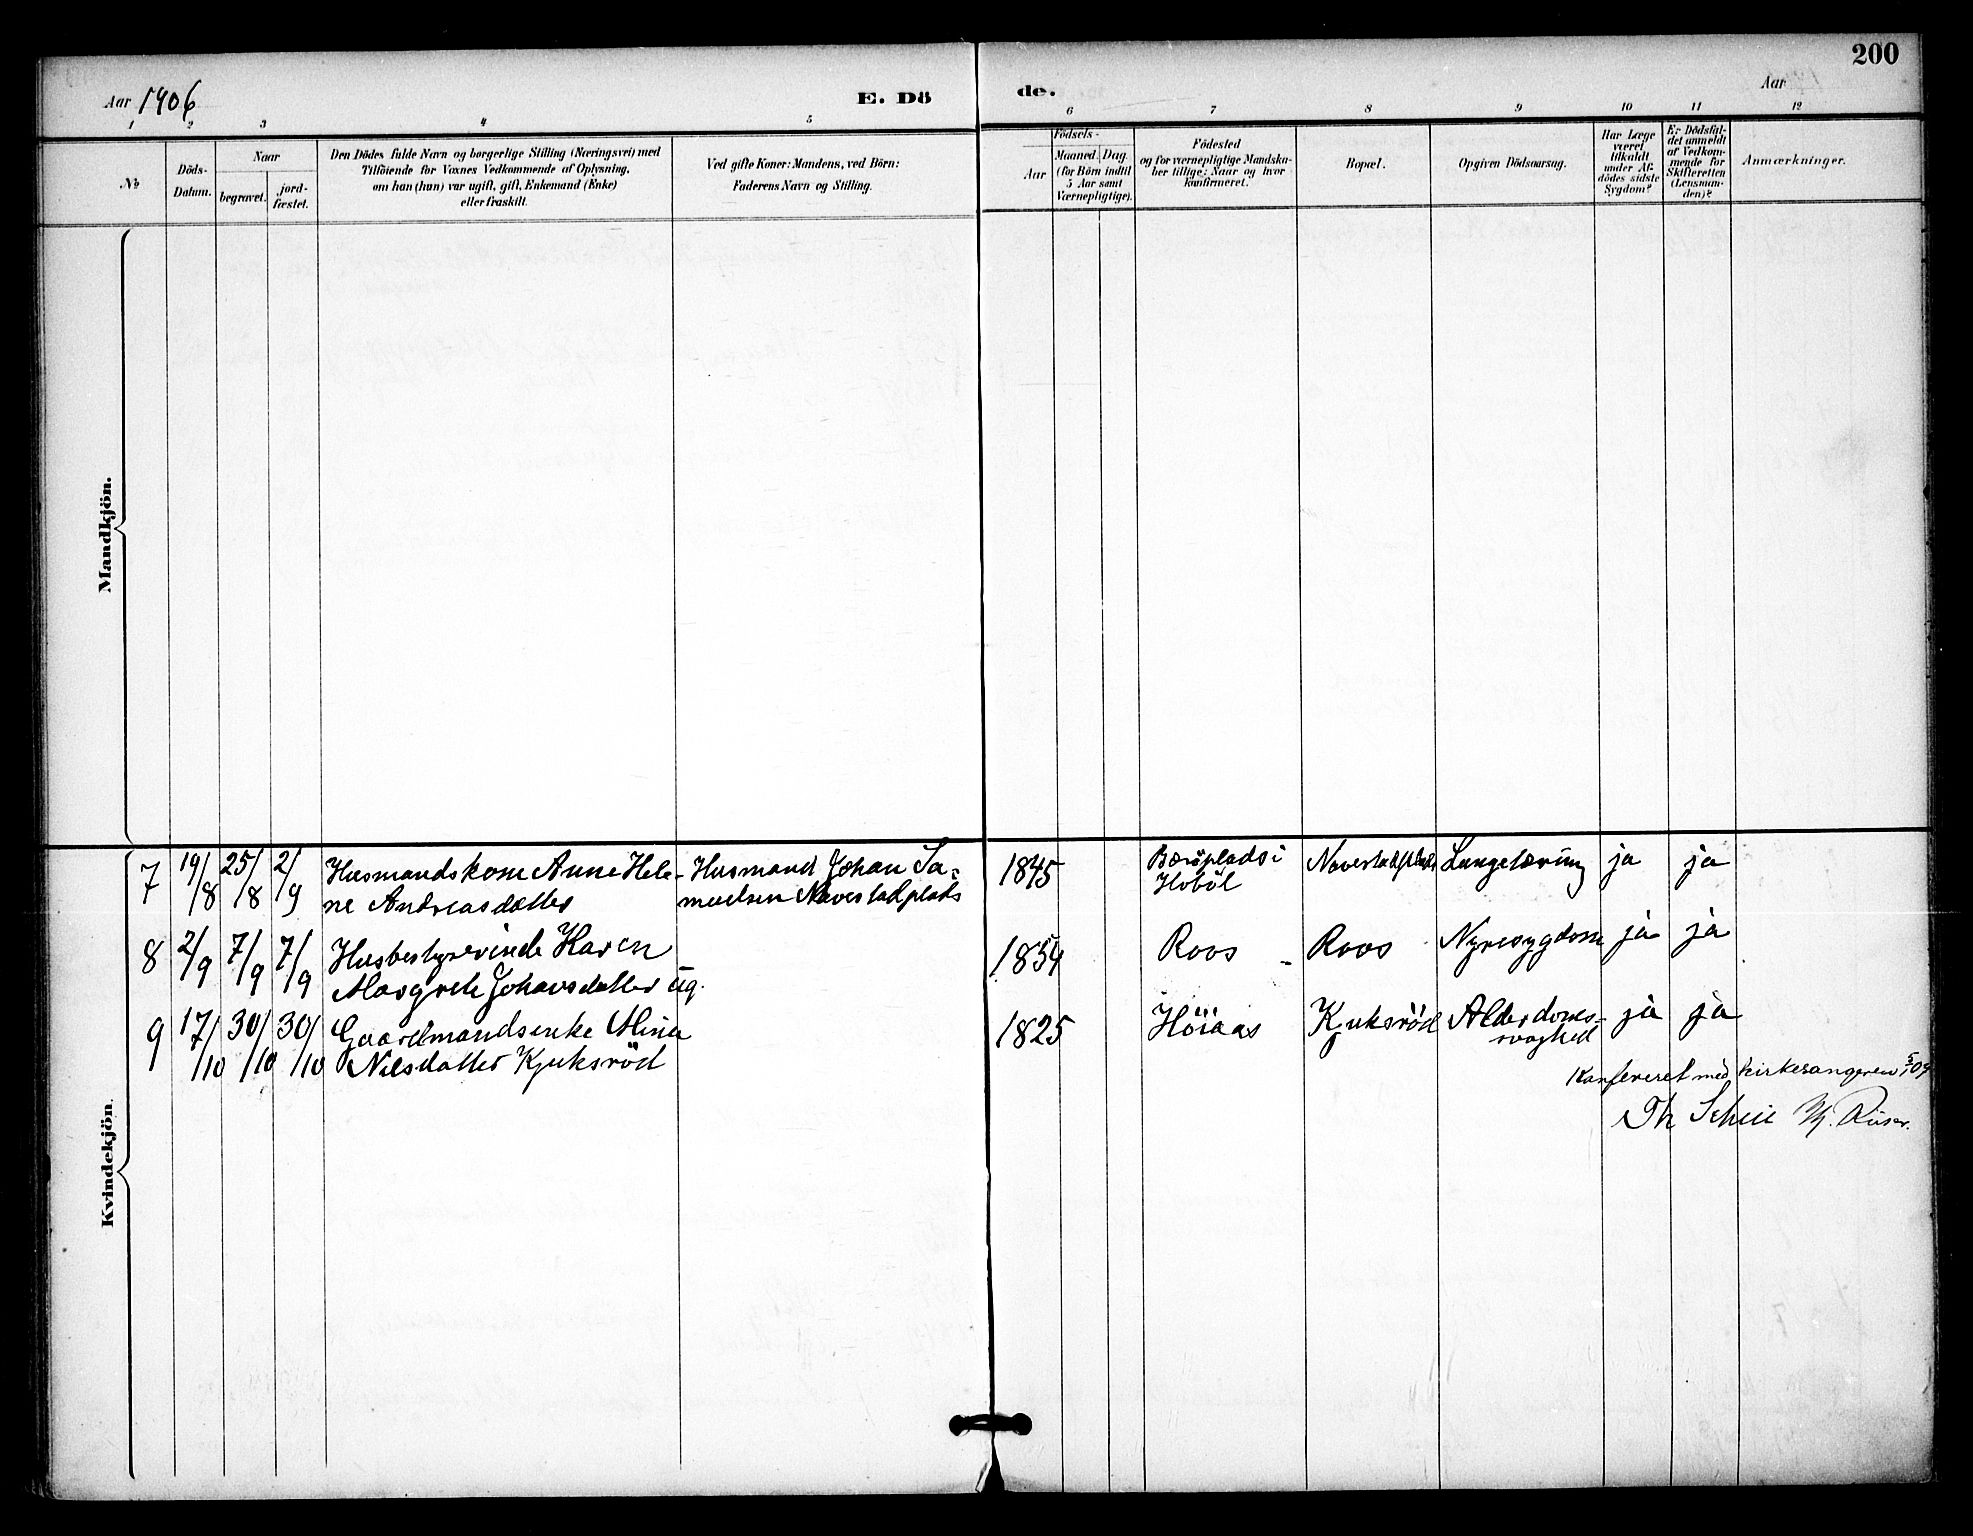 200
Aar 1906
E. Dö
de.
Aar
1 2 3 4 5
6 7 8 9 10 11 12
№
Döds-
Datum.
Naar
begravet.
jord-
fæstet.
Den Dödes fulde Navn og borgerlige Stilling (Næringsvei) med
Tilföiende for Voxnes Vedkommende af Oplysning,
om han (hun) var ugift, gift, Enkemand (Enke)
eller fraskilt.
Ved gifte Koner: Mandens, ved Börn:
Faderens Navn og Stilling.
Födsels-
Aar
Maaned. Dag
(for Börn indtil
5 Aar samt
Værnepligtige).
Födested
og for værnepligtige Mandska-
ber tillige: Naar og hvor
konfirmeret.
Bopæl.
Opgiven Dödsaarsag.
Har Læge
været
tilkaldt
under Af-
dödes sidste
Sygdom?
Er Dödsfal-
det anmeldt
af Vedkom-
mende for
Skifteretten
(Lensman-
den)?
Anmærkninger.
Mandkjön.
Kvindekjön.
7 19/8 25/8 2/9 Husmandskone Anne Hele- Husmand Johan Sa- 1845 Bæröplads i Navestadplads Lungetæring ja ja
ne Andreasdatter muelsen Navestadplads Hoböl
8 2/9 7/9 7/9 Husbestyrerinde Karen 1854 Roos - Roos Nyresygdom ja ja
Margrete Johansdatter ug.
9 17/10 30/10 30/10 Gaardmandsenke Mina 1825 Höiaas Kjuksröd Alderdoms- ja ja
Nilsdatter Kjuksröd svaghed
Konfereret med kirkesangeren 5/1 09
Th Scheie M. Riiser.